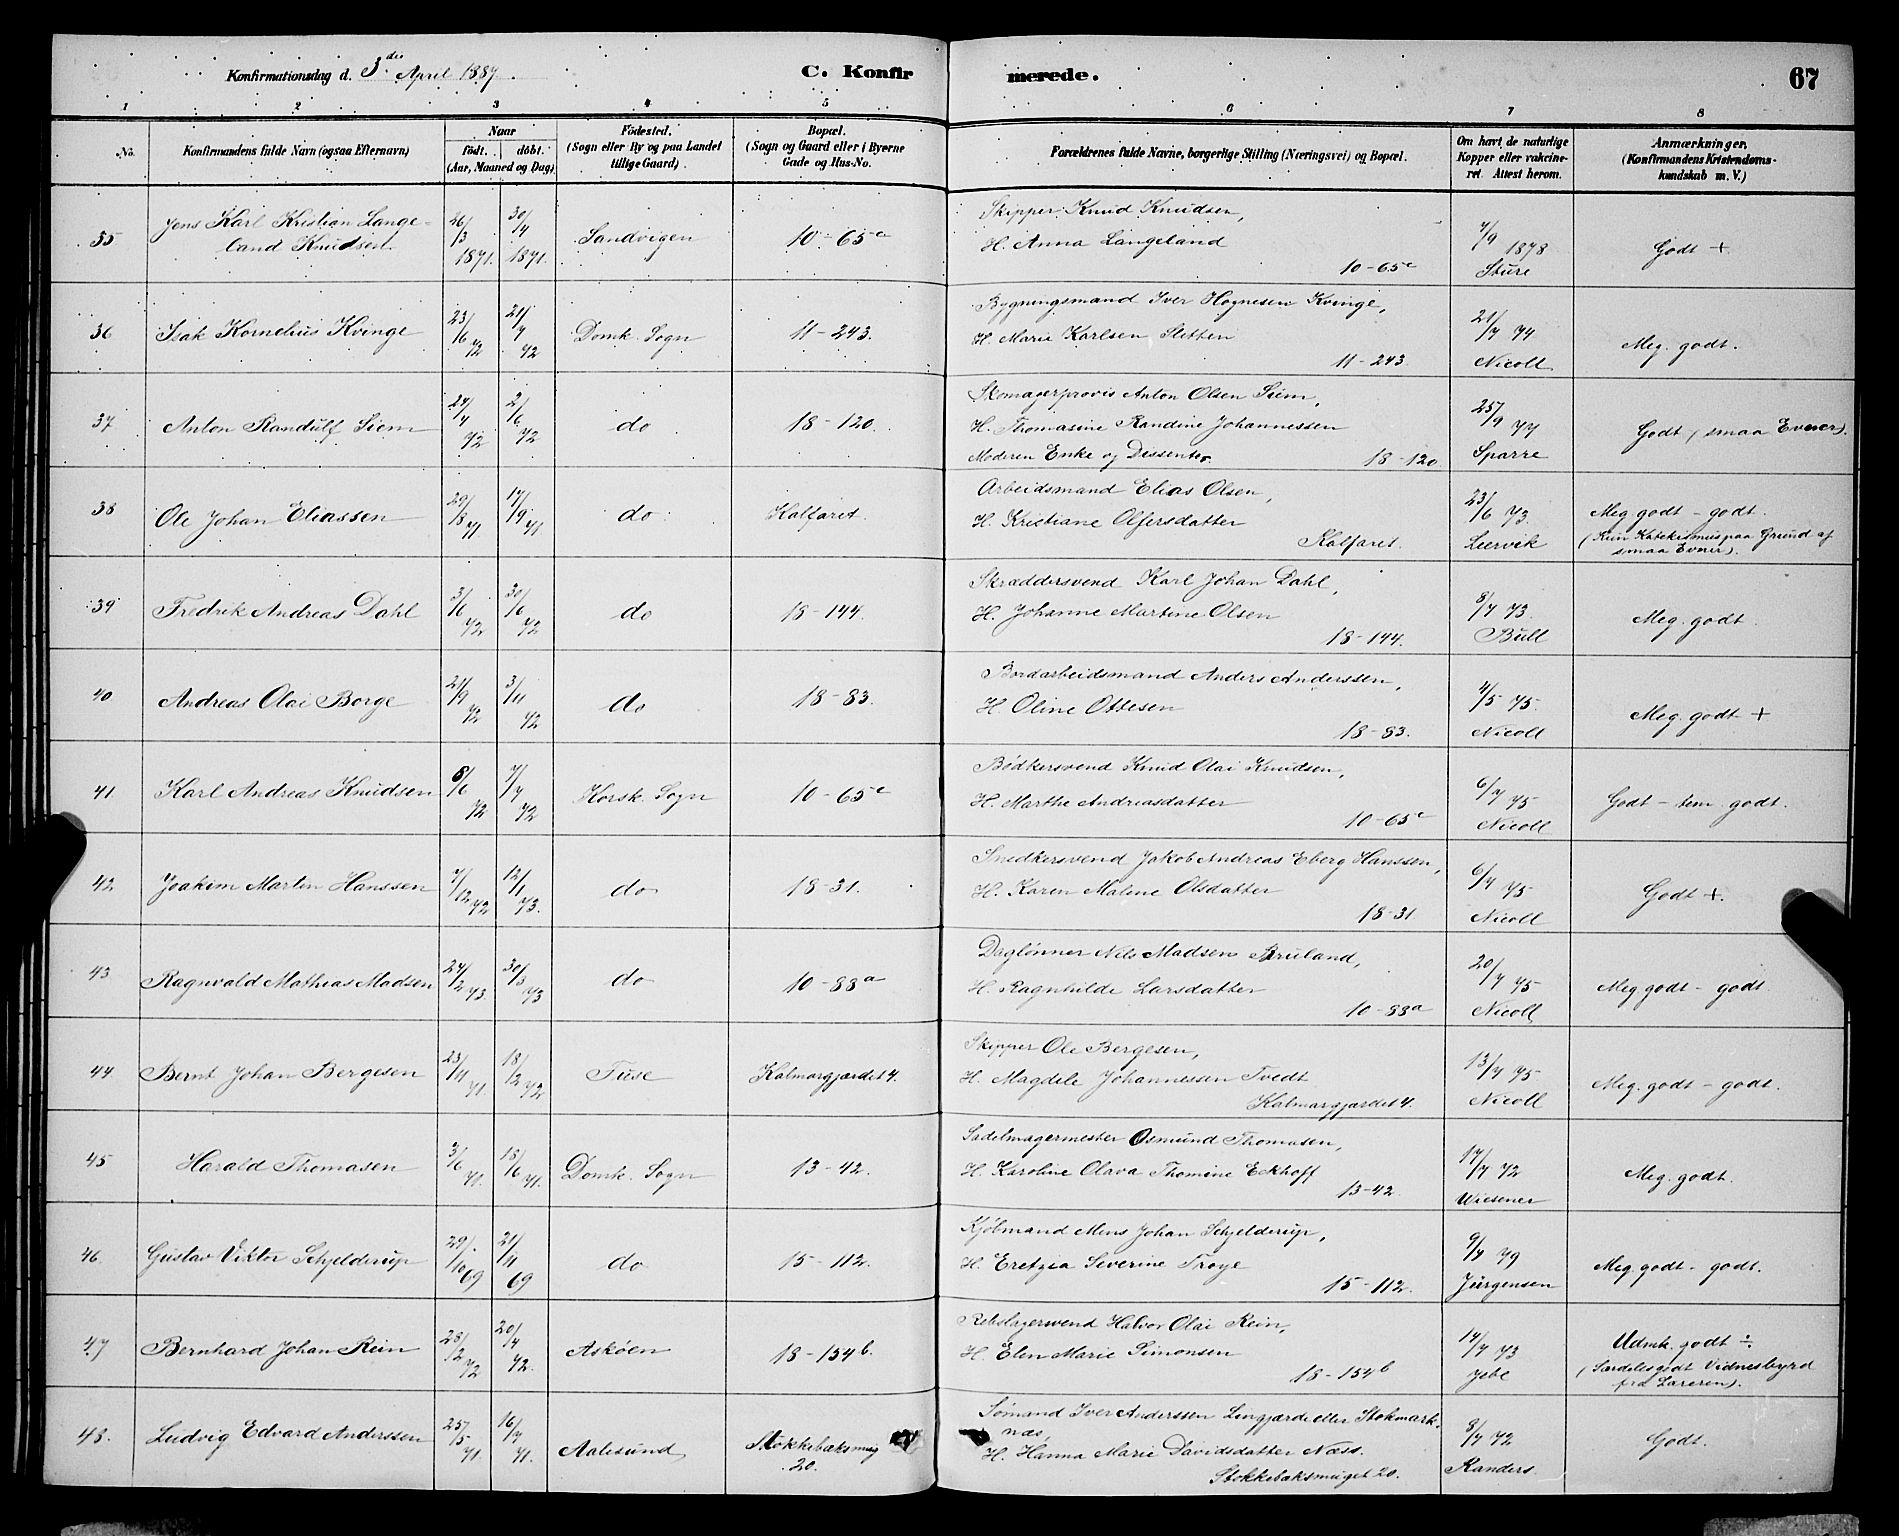 Konfirmationsdag d. 3die April 1887.
C. Konfirmerede.
67
1 2 3 4 5 6 7 8
No.
Konfirmandens fulde Navn (ogsaa Efternavn)
Naar
født. døbt.
(Aar, Maaned og Dag)
Födested.
(Sogn eller By og paa Landet
tillige Gaard).
Bopæl.
(Sogn og Gaard eller i Byerne
Gade og Hus-No.
Forældrenes fulde Navne, borgerlige Stilling (Næringsvei) og Bopæl.
Om havt de naturlige
Kopper eller vakcine-
ret. Attest herom.
Anmærkninger.
(Konfirmandens Kristendoms-
kundskab m. V.)
35 Jens Karl Kristian Lange-
land Knudsen 26/3 1871. 30/4 1871. Sandvigen 10-65c
Skipper Knud Knudsen,
H. Anna Langeland
10-65c
4/9 1878
Sture
Godt +
36 Isak Kornelius Kvinge 23/6 72 21/7 72 Domk. Sogn 11-243.
Bygningsmand Iver Hognesen Kvinge,
H. Marie Karlsen Sletten
11-243.
21/7 74
Nicoll
Meg. godt.
37 Anton Randulf Siem 24/4 72 2/6 72 do 18-120.
Skomagerprovis Anton Olsen Siem,
H. Thomasine Randine Johannessen
Moderen Enke og Dissenter. 18-120
25/9 77
Sparre
Godt (smaa Evner).
38 Ole Johan Eliassen 29/8 71 17/9 71 do Kalfaret.
Arbeidsmand Elias Olsen,
H. Kristiane Olfersdatter
Kalfaret.
23/6 73.
Leervik
Meg godt - godt.
(Kun Katekismus paa Grund af
smaa Evner).
39 Fredrik Andreas Dahl 3/6 72 30/6 72 do 18-144.
Skræddersvend Karl Johan Dahl,
H. Johanne Martine Olsen
18-144.
8/7 73.
Bull
Meg. godt.
40 Andreas Olai Borge 21/9 72 3/11 72 do 18-83.
Bordarbeidsmand Anders Anderssen,
H. Oline Ottesen
18-83.
4/5 75.
Nicoll
Meg. godt +
41 Karl Andreas Knudsen 8/6 72 7/7 72 Korsk. Sogn 10-65c
Bødkersvend Knud Olai Knudsen,
H. Marthe Andreasdatter
10-65c
6/7 75
Nicoll
Godt - tem. godt.
42 Joakim Martin Hanssen 7/12 72 12/1 73. do 18-31.
Snedkersvend Jakob Andreas Eberg Hanssen,
H. Karen Malene Olsdatter
18-31
6/7 75
Nicoll
Godt +.
43 Ragnvald Mathias Madsen 24/2 73 30/3 73 do 10-88a
Daglønner Nils Madsen Bruland,
H. Ragnhilde Larsdatter
10-88a
20/7 75
Nicoll
Meg godt - godt
44 Bernt Johan Bergesen 23/11 71. 18/2 72 Fuse Kalmargjærdet 4.
Skipper Ole Bergesen,
H. Magdele Johannessen Tvedt
Kalmargjærdet 4.
13/7 75
Nicoll
Meg. godt - godt.
45 Harald Thomasen 3/6 71. 18/6 71. Domk. Sogn 13-42.
Sadelmagermester Osmund Thomasen,
H. Karoline Olava Thomine Eckhoff
13-42.
17/7 72
Wiesener
Meg. godt.
46. Gustav Viktor Schjelderup 29/10 69 21/11 69 do 15-112.
Kjøbmand Mens Johan Schjelderup,
H. Eretzia Severine Troye
15-112.
9/7 79
Jürgensen
Meg. godt - godt.
47 Bernhard Johan Rein 28/2 72 20/4 72. Askøen 18-154b.
Rebslagersvend Halvor Olai Rein,
H. Elen Marie Simonsen
18-154b
14/7 73
Isbe
Udmk. godt ÷
(Særdeles godt Vidnesbyrd
fra Læreren).
48. Ludvig Edvard Anderssen 25/5 71. 16/7 71. Aalesund Stokkebæksmug
20.
Sømand Iver Anderssen Lingjærde eller Stokmark-
næs,
H. Hanna Marie Davidsdatter Næss.
Stokkebæksmuget 20.
8/7 72
Randers
Godt.